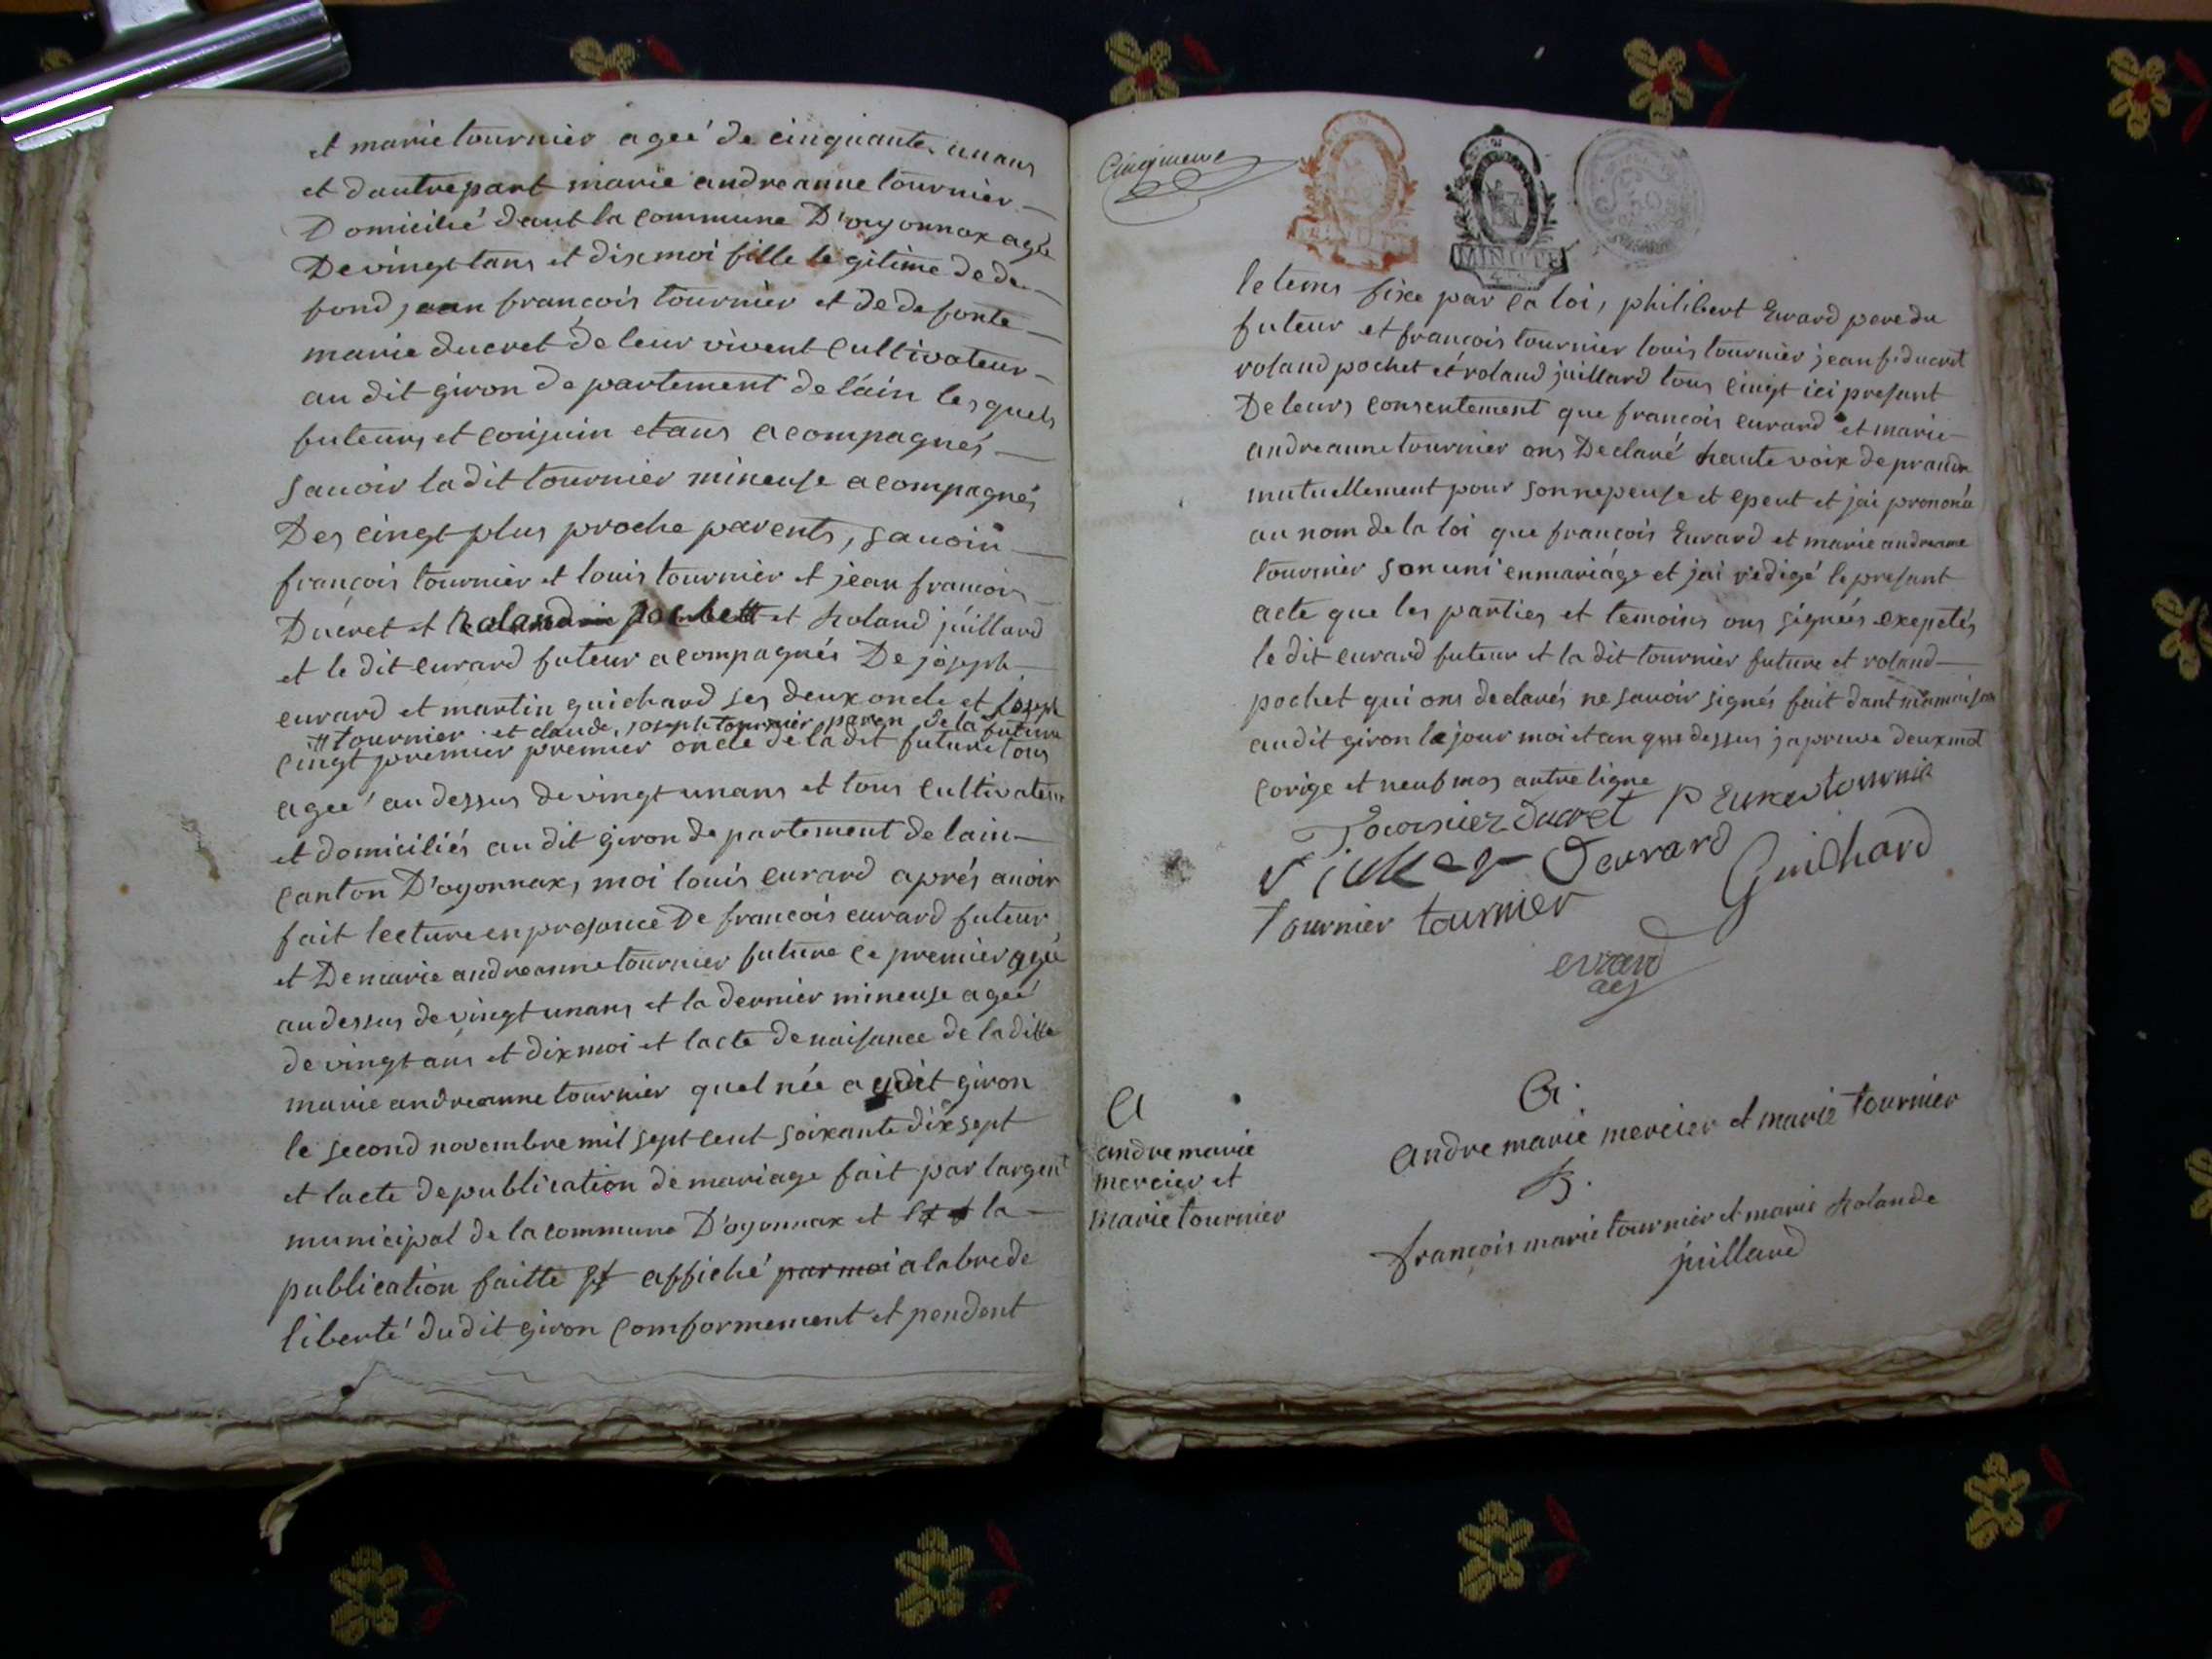 et marie tournier ageé de cinquante un ans
et dautre part marie andreanne tournier
Domicilié dant la commune D'oyonnax agée
De vingt tans et dix moi fille legitime de de
fond jean francois tournier et de defonte
marie ducret de leur vivent Cultivateur
au dit giron departement de lain les quels
futeurs et conjuin etans acompagnés
savoir la dit tournier mineuse acompagnés
Des cingt plus proche parents, savoir
françois tournier et louis tournier et jean francois
Ducret et Roland et Roland juillard
et le dit eurard futeur acompagnés De joseph
eurard et martin guichard ses deux oncle et joseph
tournier et claude joseph tournier paren de la future
cingt premier premier oncle de la dit future tous
ageé au dessus de vingt unans et tous Cultivateur
et domiciliés au dit giron departement de lain
Canton D'oyonnax, moi louis eurard aprés avoir
fait lecture en presance De francois eurard futeur
et De marie andreanne tournier future le premier agé
au dessus de vingt unans et la dernier mineuse ageé
de vingt ans et dix moi et lacte de naisance de la ditte
marie andreanne tournier quel née audit giron
le second novembre mil sept cent soixante dix sept
et lacte de publication de mariage fait par largent
municipal de la commune D'oyonnax et la
publication faitte affiché par moi a labre de
liberté dudit giron Comformement et pendent
MINUTE
le tems fixe par la loi, philibert Eurard pere du
futeur et francois tournier louis tournier jean f. ducret
roland pochet et roland juillard tous cingt ici presant
De leurs consentement que francois eurard et marie
andreanne tournier ons Declaré haute voix de prandre
mutuellement pour son nepeuse et epeut et jai prononcé
au nom de la loi que francois Eurard et marie andreanne
tournier son uni en mariage et jai redigé le presant
acte que les parties et temoins ons signées exepetés
le dit eurard futeur et la dit tournier future et roland
pochet qui ons declarés ne savoir signés fait dant ma maison
au dit giron le jour moi et an que dessus japruve deux mot
Corige et neuf mos autre ligne
Tournier Ducret P Eurard tournier
J eurard Guichard
Tournier tournier
evrard
aes
A
andre marie
mercier et
marie tournier
A.
Andre marie mercier et marie tournier
B.
francois marie tournier et marie Rolande
juillard